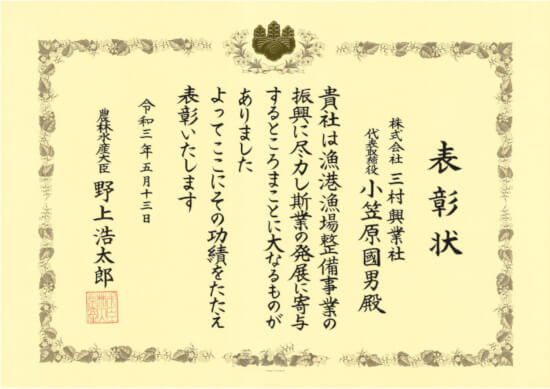 表彰状
株式会社 三村興業社
代表取締役 小笠原國男殿
貴社は漁港漁場整備事業の
振興に尽力し斯業の発展に寄与
するところまことに大なるものが
ありました
よってここにその功績をたたえ
表彰いたします
令和三年五月十三日
農林水産大臣 野上浩太郎